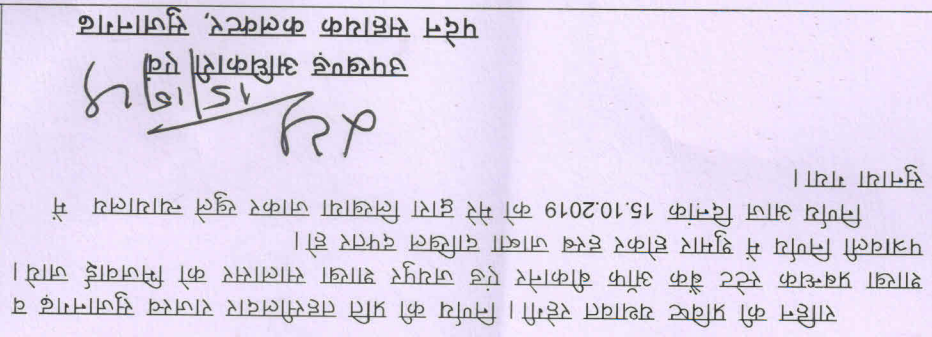 राहिन की प्रविष्टि यथावत रहेगी। निर्णय की प्रति तहसीलदार राजस्व सुजानगढ़ व
शाखा प्रबन्धक स्टेट बैंक ऑफ बीकानेर एंड जयपुर शाखा सालासर को भिजवाई जाये।
पत्रावली निर्णय में शुमार होकर हस्ब जाब्ता दाखिल दफ्तर हो।
निर्णय आज दिनांक 15.10.2019 को मेरे द्वारा लिखाया जाकर खुले न्यायालय में
सुनाया गया।
15/10/19
उपखण्ड अधिकारी एवं
पदेन सहायक कलक्टर, सुजानगढ